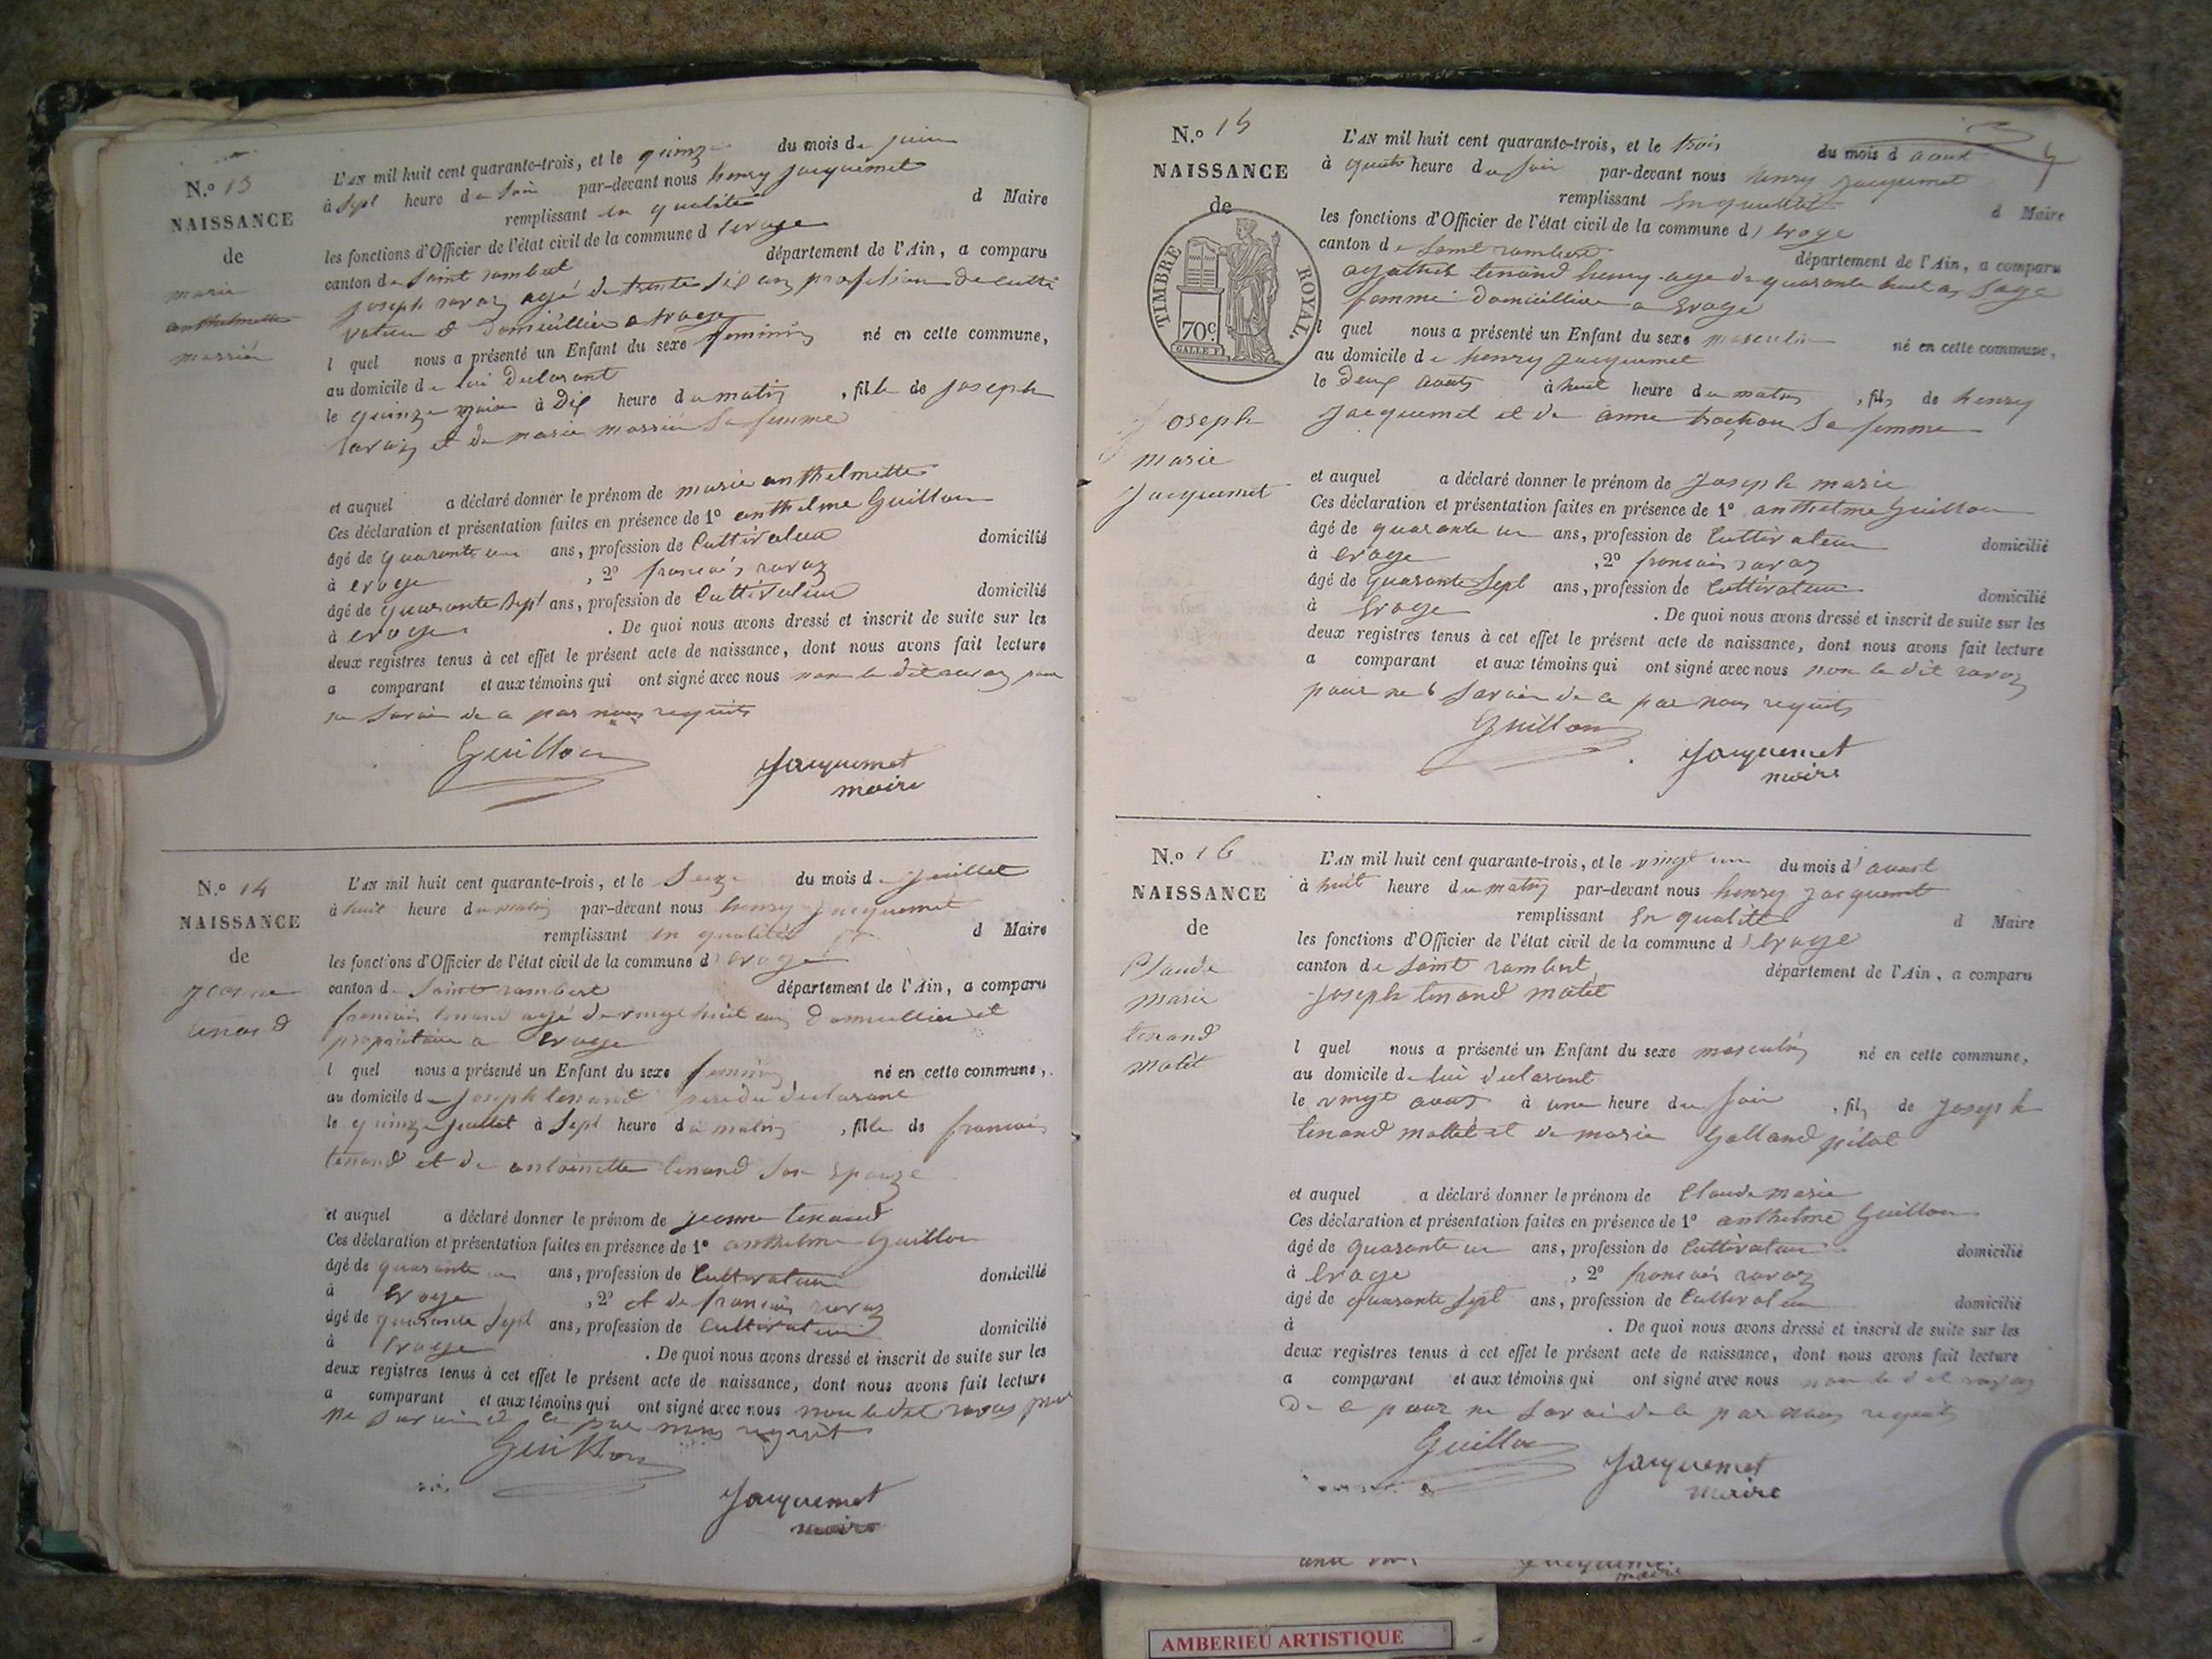 N.º 13
NAISSANCE
de
marie
anthelmette
massiéu
L'AN mil huit cent quarante-trois, et le quinze du mois de juin
à sept heure du soir par-devant nous henry jacquemet
remplissant en qualité d Maire
les fonctions d'Officier de l'état civil de la commune d'evoge
canton de saint rambert département de l'Ain, a comparu
joseph ravaz agé de trente six ans profession de culti
vateur & domicillier a evoge
l quel nous a présenté un Enfant du sexe feminin né en cette commune,
au domicile de lui declarant
le quinze juin à dix heure du matin , fille de joseph
ravaz et de marie massiéu sa femme
et auquel a déclaré donner le prénom de marie anthelmette
Ces déclaration et présentation faites en présence de 1º anthelme Guillon
âgé de quarante un ans, profession de Cultivateur domicilié
à evoge , 2º francois ravaz
âgé de quarante sept ans, profession de Cultivateur domicilié
à evoge . De quoi nous avons dressé et inscrit de suite sur les
deux registres tenus à cet effet le présent acte de naissance, dont nous avons fait lecture
a comparant et aux témoins qui ont signé avec nous non le dit ravaz pour
ne savoir de ce par nous requits
Guillon
Jacquemet
maire
N.º 14
NAISSANCE
de
jeanne
tenand
L'AN mil huit cent quarante-trois, et le seize du mois de juillet
à huit heure du matin par-devant nous henry jacquemet
remplissant en qualité d Maire
les fonctions d'Officier de l'état civil de la commune d'evoge
canton de saint rambert département de l'Ain, a comparu
francois tenand agé de vingt huit ans domicillier et
propriétaire a evoge
l quel nous a présenté un Enfant du sexe feminin né en cette commune,
au domicile de joseph tenand pere du declarant
le quinze juillet à sept heure du matin , fille de francois
tenand et de antoinette tenand son epouze
et auquel a déclaré donner le prénom de jeanne tenand
Ces déclaration et présentation faites en présence de 1º anthelme Guillon
âgé de quarante un ans, profession de Cultivateur domicilié
à evoge , 2º et de francois ravaz
âgé de quarante sept ans, profession de cultivateur domicilié
à evoge . De quoi nous avons dressé et inscrit de suite sur les
deux registres tenus à cet effet le présent acte de naissance, dont nous avons fait lecture
a comparant et aux témoins qui ont signé avec nous non ledit ravaz pour
ne savoir ce par nous requit
Guillon
Jacquemet
maire
N.º 15
NAISSANCE
de
TIMBRE ROYAL.
70 c.
joseph
marie
jacquemet
L'AN mil huit cent quarante-trois, et le trois du mois d aout
à quatre heure du soir par-devant nous henry jacquemet
remplissant en qualité d Maire
les fonctions d'Officier de l'état civil de la commune d'evoge
canton de saint rambert département de l'Ain, a comparu
agathes tenand henry agé de quarante huit an sage
femme domicillier a evoge
l quel nous a présenté un Enfant du sexe masculin né en cette commune,
au domicile de henry jacquemet
le deux aout à huit heure du matin , fils de henry
jacquemet et de anne sa femme
et auquel a déclaré donner le prénom de joseph marie
Ces déclaration et présentation faites en présence de 1º anthelme Guillon
âgé de quarante un ans, profession de Cultivateur domicilié
à evoge , 2º francois ravaz
âgé de quarante sept ans, profession de Cultivateur domicilié
à evoge . De quoi nous avons dressé et inscrit de suite sur les
deux registres tenus à cet effet le présent acte de naissance, dont nous avons fait lecture
a comparant et aux témoins qui ont signé avec nous non le dit ravaz
pour ne savoir de ce par nous requits
Guillon
Jacquemet
maire
N.º 16
NAISSANCE
de
Claude
marie
tenand
matét
L'AN mil huit cent quarante-trois, et le vingt un du mois d'aoust
à huit heure du matin par-devant nous henry jacquemet
remplissant en qualité d Maire
les fonctions d'Officier de l'état civil de la commune d'evoge
canton de saint rambert département de l'Ain, a comparu
joseph tenand matét
l quel nous a présenté un Enfant du sexe masculin né en cette commune,
au domicile de lui declarant
le vingt aout à une heure du soir , fils de joseph
tenand mattét et de marie Galland pilat
et auquel a déclaré donner le prénom de Claude marie
Ces déclaration et présentation faites en présence de 1º anthelme Guillon
âgé de quarante un ans, profession de Cultivateur domicilié
à evoge , 2º francois ravaz
âgé de quarante sept ans, profession de Cultivateur domicilié
à . De quoi nous avons dressé et inscrit de suite sur les
deux registres tenus à cet effet le présent acte de naissance, dont nous avons fait lecture
a comparant et aux témoins qui ont signé avec nous non le dit ravaz
de ce pour ne savoir de ce par nous requits
Guillon
Jacquemet
maire
Jacquemet
maire
AMBERIEU ARTISTIQUE